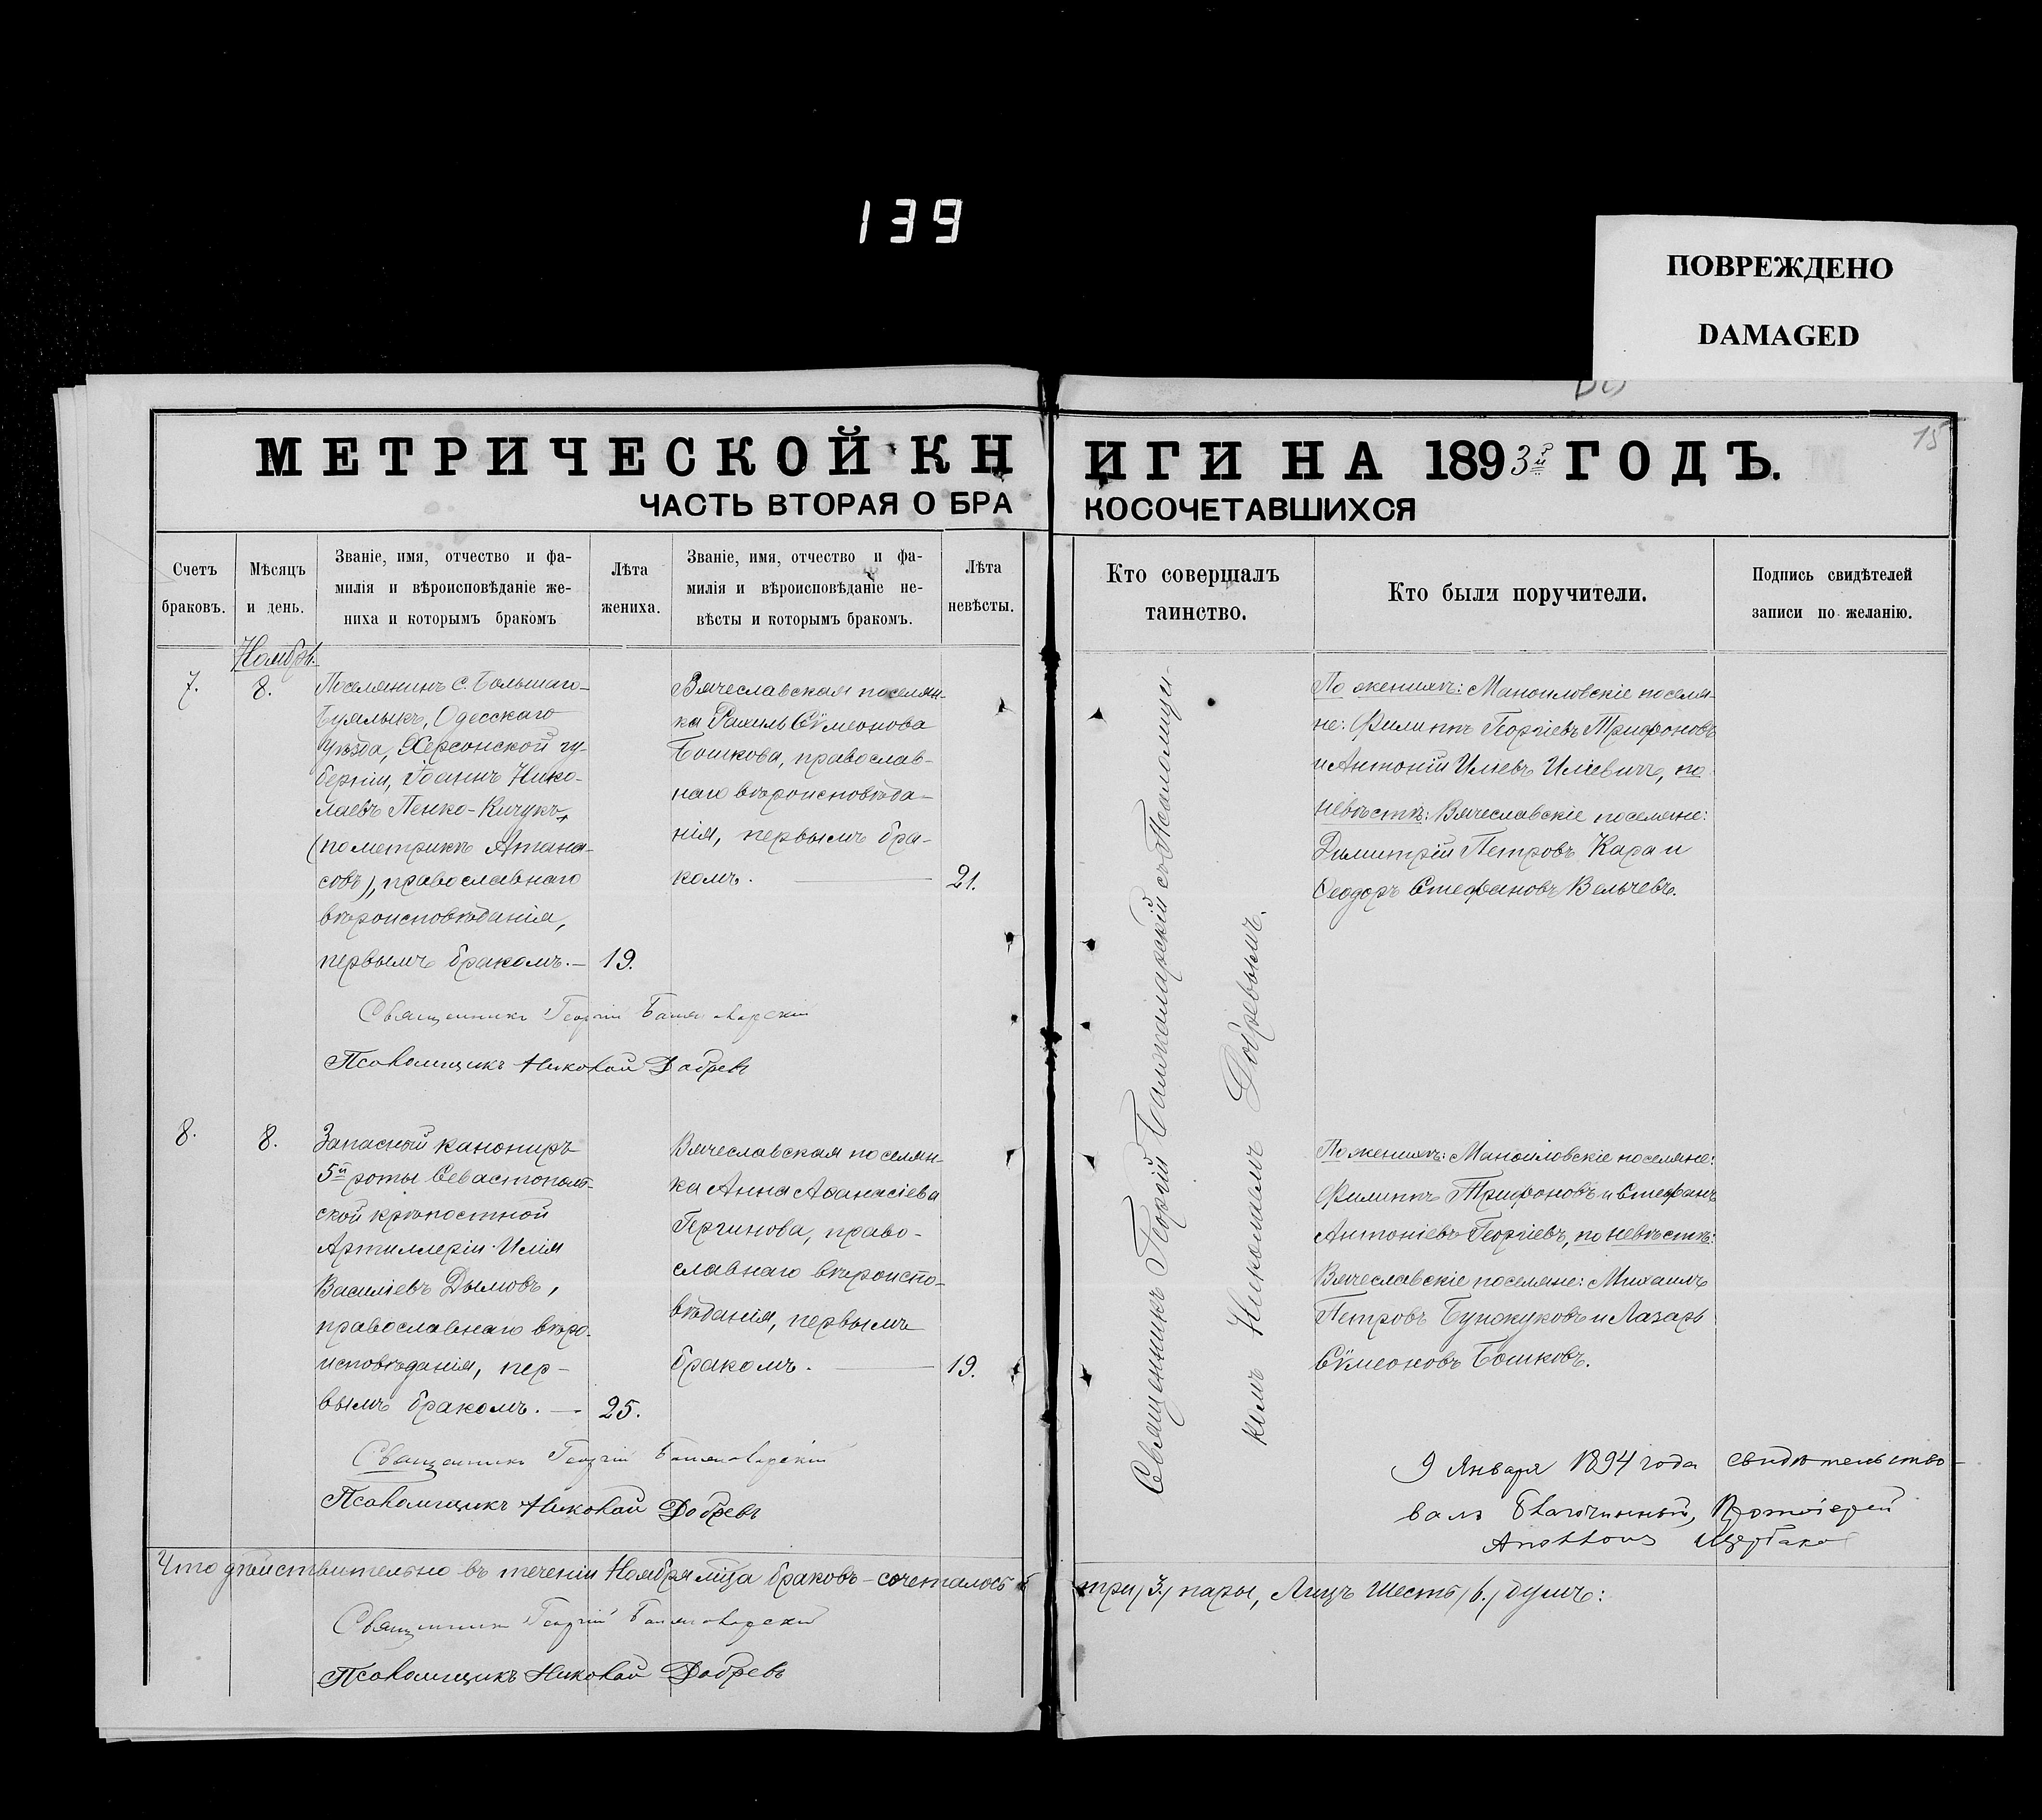 139
ПОВРЕЖДЕНО
DAMAGED
15
МЕТРИЧЕСКОЙ КНИГИ НА 1893й ГОДЪ.
ЧАСТЬ ВТОРАЯ О БРАКОСОЧЕТАВШИХСЯ
Счетъ
браковъ.
Мѣсяцъ
и день.
Званіе, имя, отчество и фа-
милія и вѣроисповѣданіе же-
ниха и которымъ бракомъ
Лѣта
жениха.
Званіе, имя, отчество и фа-
милія и вѣроисповѣданіе не-
вѣсты и которымъ бракомъ.
Лѣта
невѣсты.
Кто совершалъ
таинство.
Кто были поручители.
Подпись свидѣтелей
записи по желанію.
Ноябрь.
7.
8.
Поселянинъ с. Большаго-
Буялыкъ, Одесскаго
Уѣзда, Херсонской гу-
берніи, Іоаннъ Нико-
лаевъ Пенко-Кичукъ
(по метрикѣ Атана-
совъ), православнаго
вѣроисповѣданія,
первымъ бракомъ.— 19.
Вячеславская поселян-
ка Рахиль Сѵмеонова
Бошкова, православ-
наго вѣроисповѣда-
нія, первымъ бра-
комъ. — 21.
Священникъ Георгій
Псаломщикъ Николай Добревъ
По женихѣ: Маноиловскіе поселя-
не: Филиппъ Георгіевъ Трифоновъ
и Антоній Иліевъ Иліевичъ, по
невѣстѣ: Вячеславскіе поселяне:
Димитрій Петровъ Кара и
Ѳеодоръ Стефановъ Вельчевъ.
Священникъ Георгій съ Псаломщи-
комъ Николаемъ Добревымъ.
8.
8.
Запасной канониръ
5й роты Севастополь-
ской крѣпостной
Артиллеріи Илія
Василіевъ Дымовъ,
православнаго вѣро-
исповѣданія, пер-
вымъ бракомъ. — 25.
Вячеславская поселян-
ка Анна Аѳанасіева
Гергинова, право-
славнаго вѣроиспо-
вѣданія, первымъ
бракомъ. — 19.
Священникъ Георгій
Псаломщикъ Николай Добревъ
По женихѣ: Маноиловскіе поселяне:
Филиппъ Трифоновъ и Стефанъ
Антоніевъ Георгіевъ, по невѣстѣ:
Вячеславскіе поселяне: Михаилъ
Петровъ Бунжуковъ и Лазарь
Сѵмеоновъ Бошковъ.
9 Января 1894 года свидѣтельство-
валъ Благочинный, Протоіерей
Что дѣйствительно въ теченіи Ноября мѣца браковъ-сочеталось три /3./ пары, Лицъ Шесть /6./ душъ:
Священникъ Георгій
Псаломщикъ Николай Добревъ